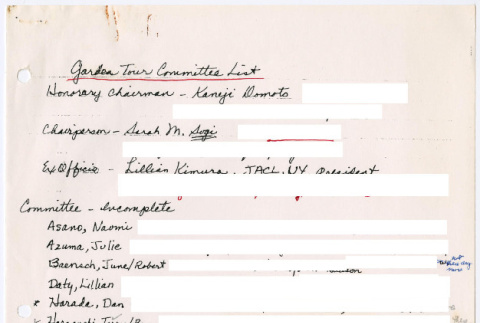 Garden Tour Committee List
Honorary Chairman - Kaneji Domoto
Chairperson - Sarah M. Sugi
Ex Officio - Lillian Kimura, JACL, NY President
Committee - Incomplete
Asano, Naomi
Azuma, Julie
Baensch, June/Robert
Daty, Lillian
* Harada, Dan